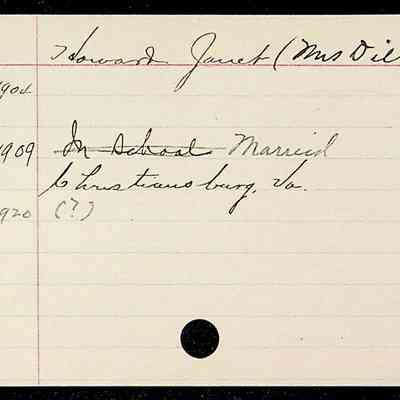 Howard Janet (Mrs Dil
1904
1909 In school Married
Christiansburg, Va.
1920 (?)